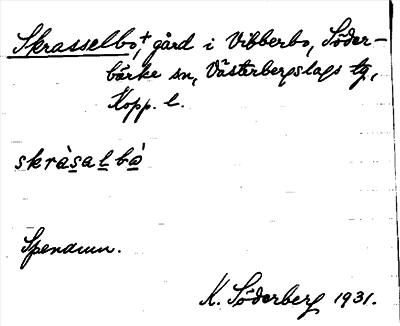 Skrasselbo,+ gård i Vibberbo, Söder-
bärke sn, Västerbergslags tg,
Kopp. l.
skràsalbò
K. Söderberg 1931.